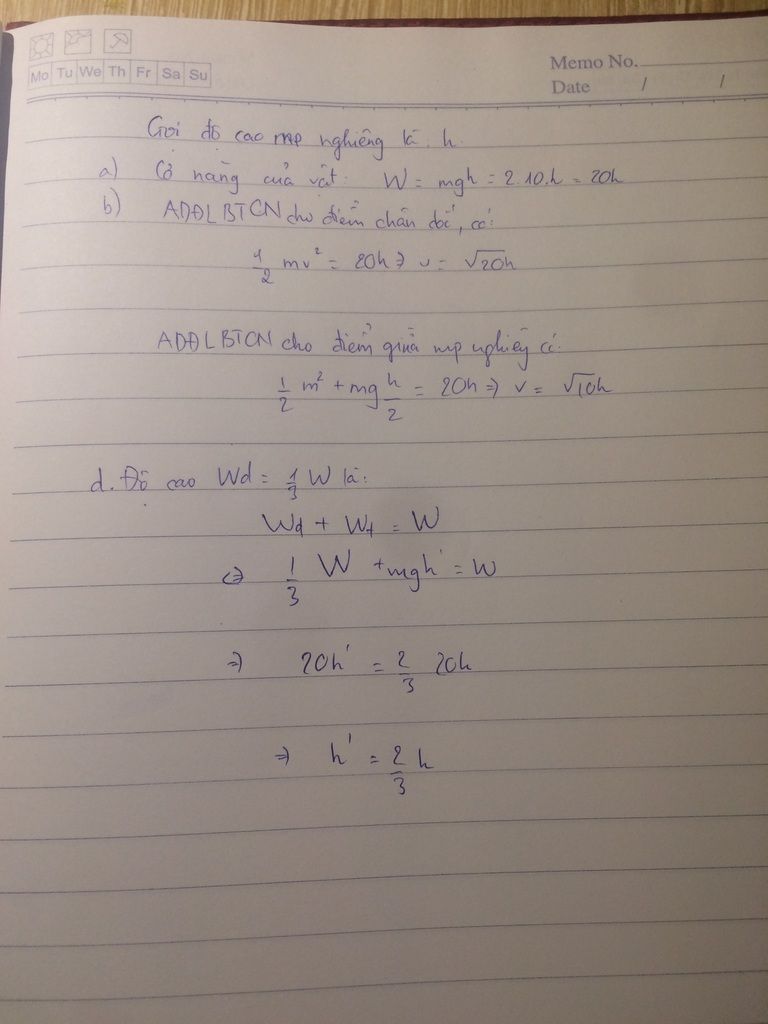 Mo Tu We Th Fr Sa Su
Memo No.
Date / /
Gọi độ cao mp nghiêng là h.
a) Cơ năng của vật: W = mgh = 2.10.h = 20h
b) ADĐLBTCN cho điểm chân dốc, có:
1/2 mv² = 20h => v = √20h
ADĐLBTCN cho điểm giữa mp nghiêg có:
1/2 m² + mg h/2 = 20h => v = √10h
d. Độ cao Wd = 1/3 W là:
Wd + Wt = W
<=> 1/3 W + mgh' = W
=> 20h' = 2/3 20h
=> h' = 2/3 h